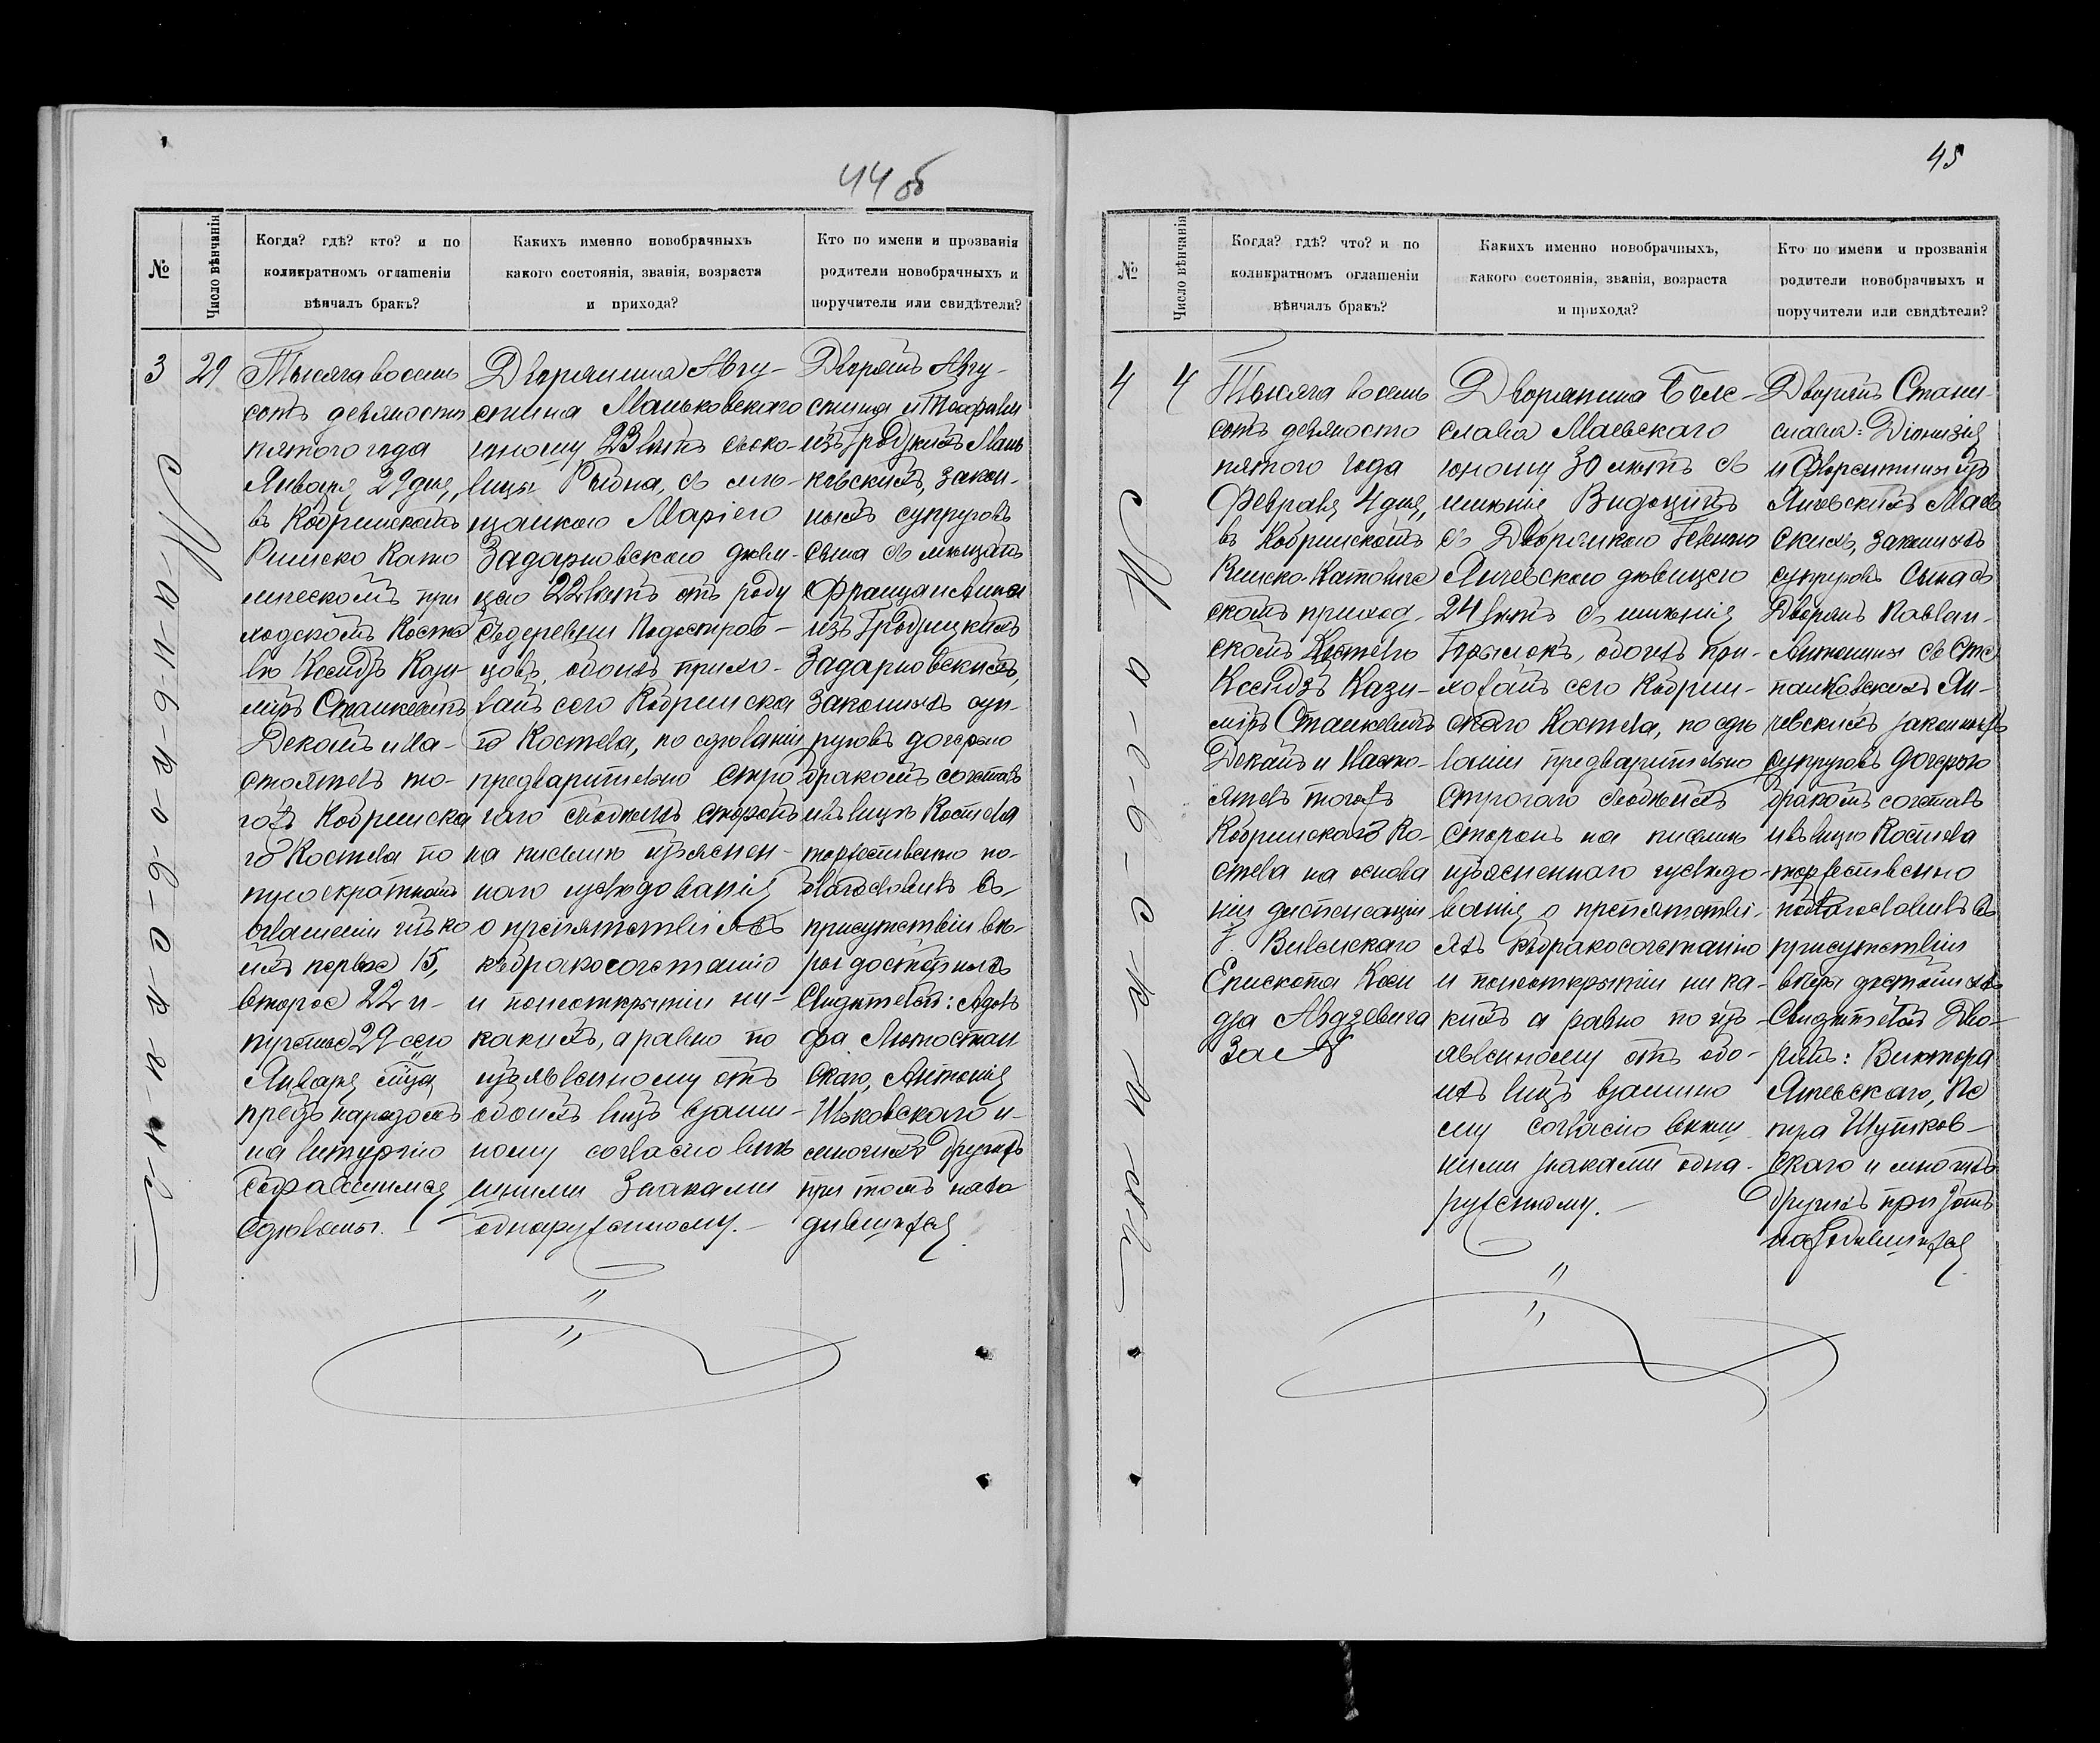 44 об
№
Число вѣнчанія
Когда? гдѣ? кто? и по
коликратномъ оглашеніи
вѣнчалъ бракъ?
Какихъ именно новобрачныхъ
какого состоянія, званія, возраста
и прихода?
Кто по имени и прозванія
родители новобрачныхъ и
поручители или свидѣтели?
3
29
Тысяча восемь
сотъ девяносто
пятого года
Января 29 дня,
въ Кобринскомъ
Римско Като
лическомъ при
ходскомъ Косте
лѣ Ксендзъ Кази
міръ Станкевичъ
Деканъ и На-
стоятель то-
гожъ Кобринска
го Костела по
троекратномъ
оглашеніи изъ ко
ихъ первое 15,
второе 22 и
третье 29 сего
Января м-ца
предъ народомъ
на литургію
собравшимся
сдѣланы.
Дворянина Авгу-
стина Маньковскаго
юношу 23 лѣтъ око-
лицы Рыдна, съ мѣ-
щанкою Маріею
Задарновскою дѣви-
цею 22 лѣтъ отъ роду
съ деревни Подостров-
цовъ, обоихъ прихо-
жанъ сего Кобринска
го Костела, по сдѣланіи
предварительно стро
гаго обоюдныхъ сторонъ
на письмѣ изъяснен-
наго изслѣдованія
о препятствіяхъ
къ бракосочетанію
и по неоткрытіи ни-
какихъ, а равно по
изъявленному отъ
обоихъ лицъ взаим-
ному согласію внѣ
шними знаками
обнаруженному.
Дворянъ Авгу-
стина и Теофиліи
изъ Гродзкихъ Мань
ковскихъ, закон-
ныхъ супруговъ
сына съ мѣщанъ
Франца и Анны
изъ Гродзицкихъ
Задарновскихъ,
законныхъ суп-
руговъ дочерью
бракомъ сочеталъ
и въ лицѣ Костела
торжественно по-
благословилъ въ
присутствіи вѣ-
ры достойныхъ
Свидѣтелей: Адоль
фа Лютостан
скаго, Антонія
Ильковскаго и
многихъ другихъ
при томъ нахо
дившихся
45
№
Число вѣнчанія
Когда? гдѣ? что? и по
коликратномъ оглашеніи
вѣнчалъ бракъ?
Какихъ именно новобрачныхъ,
какого состоянія, званія, возраста
и прихода?
Кто по имени и прозванія
родители новобрачныхъ и
поручители или свидѣтели?
4
4
Тысяча восемь
сотъ девяносто
пятого года
Февраля 4 дня,
въ Кобринскомъ
Римско-Католиче
скомъ приход-
скомъ Костелѣ
Ксендзъ Кази-
міръ Станкевичъ
Деканъ и Насто-
ятель тогожъ
Кобринскаго Ко-
стела на основа
ніи диспенсаціи
Виленскаго
Епископа Ксен
дза Авдзевича
За №
Дворянина Боле-
слава Маевскаго
юношу 30 лѣтъ съ
имѣнія
съ Дворянкою
Янчевскою дѣвицею
24 лѣтъ съ имѣнія
обоихъ при-
хожанъ сего Кобрин-
скаго Костела, по сдѣ
ланіи предварительно
строгаго обоюдныхъ
сторонъ на письмѣ
изъясненнаго изслѣдо-
ванія о препятстві-
яхъ къ бракосочетанію
и по неоткрытіи ника-
кихъ а равно по изъ-
явленному отъ обо-
ихъ лицъ взаимно
му согласію внѣш
ними знаками обна-
руженному.
Дворянъ Стани-
слава: Діонизія
и Флорентины изъ
Янчевскихъ Маев
скихъ, законныхъ
супруговъ сына съ
Дворянъ Павла и
Антонины съ Сте
панковскихъ Ян-
чевскихъ законныхъ
супруговъ дочерью
бракомъ сочеталъ
и въ лицѣ Костела
торжественно
поблагословилъ въ
присутствіи
вѣры достойныхъ
Свидѣтелей Дво-
рянъ: Виктора
Ячевскаго, Пе
тра Шутков-
скаго и многихъ
другихъ при томъ
находившихся